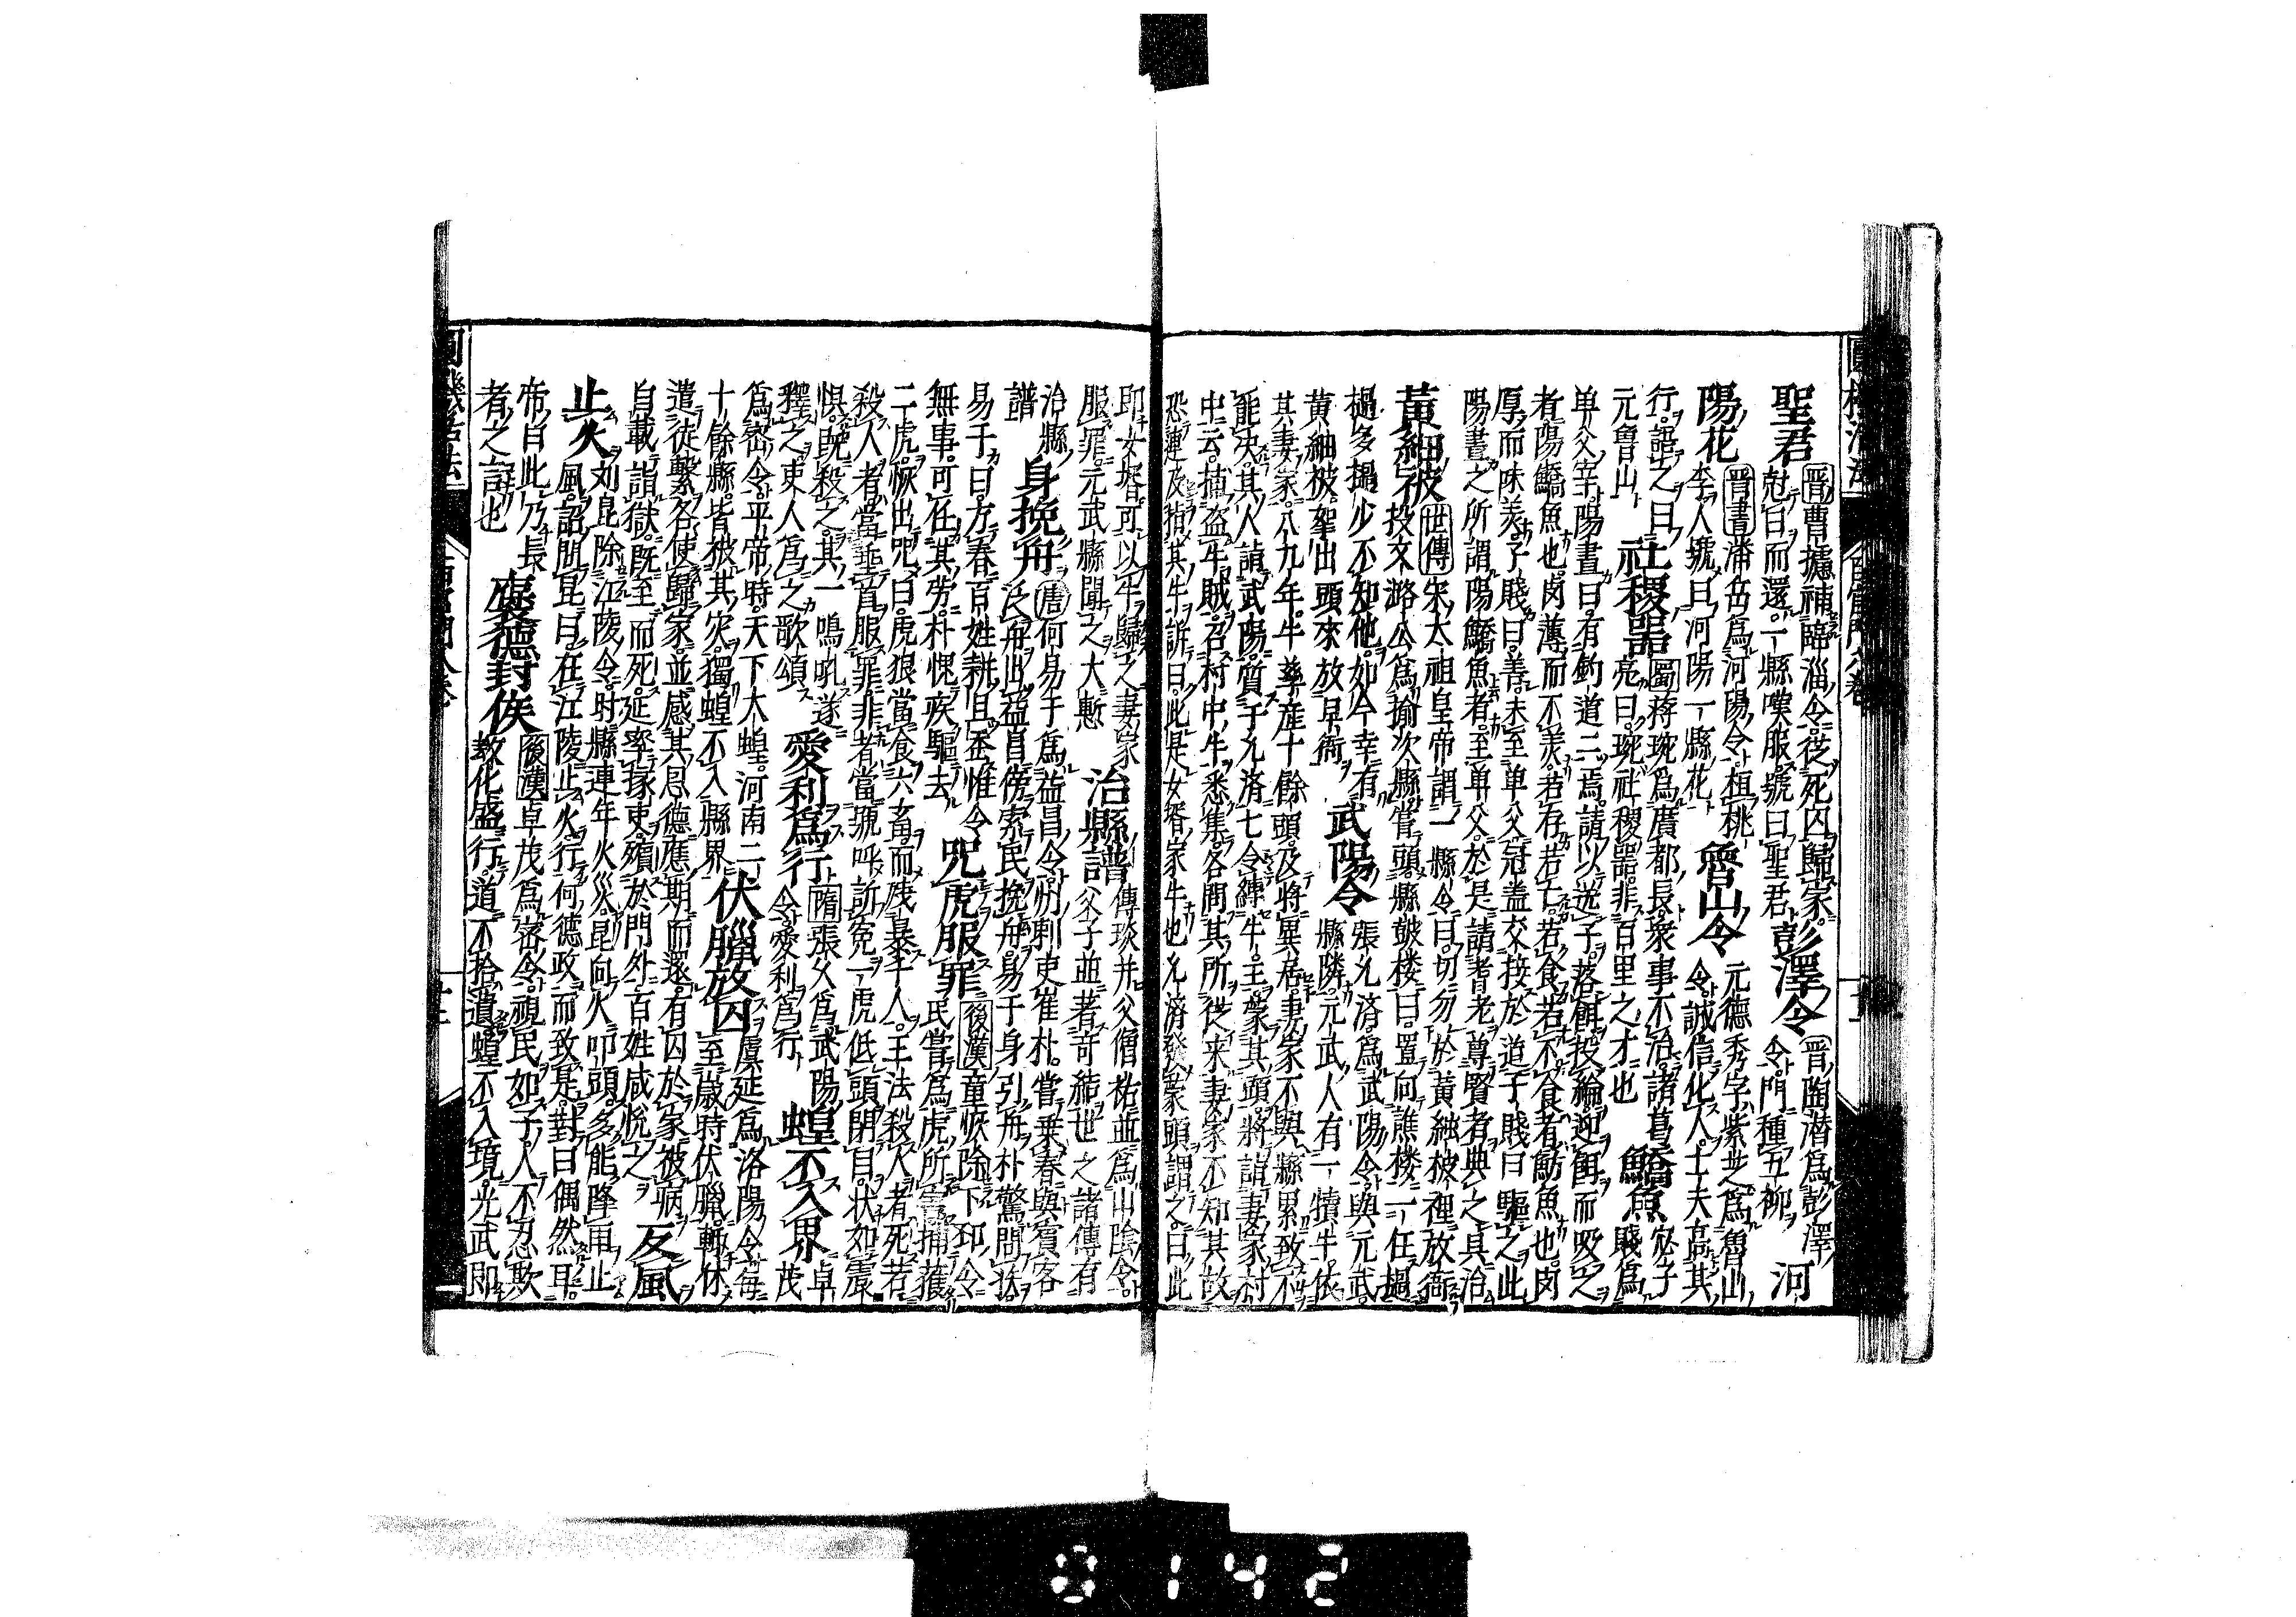 聖君
晋曹攄補臨淄令。從死囚歸家。
尅曰而還。一縣嘆服。號曰聖君
彭澤令
晋陶潜爲彭澤
令。門種五柳
河
陽花
晋書潘岳爲河陽令。植桃
李。人號曰河陽一縣花
魯山令
元德秀字紫芝爲魯山
令。誠信化人。士大夫高其
行。謂之曰
元魯山
社稷器
蜀蒋琬爲廣都長。衆事不治。諸葛
亮曰。琬社稷器。非百里之才也
鱎魚
宓子
賤爲
単父宰。陽晝曰。有釣道二焉。請以送子。落餌投綸。迎餌而吸之
者。陽鱎魚也。肉薄而不羙。若存若亡。若食若不食者魴魚也。肉
厚而味羙。子賤曰。善。未至単父。冠盖交接於道。子賤曰驅之。此
陽晝之所謂陽鱎魚者。至単父。於是請耆老尊賢者與之具治
黃紬被
世傳宋太祖皇帝謂一縣令曰。切勿於黃紬被裡放衙
投文潞公爲揄次縣。嘗頭縣皷楼曰。置向譙楼一任撾
撾多撾少不知他。如今幸有
黃紬被。挐出頭來放早衙
武陽令
張允済爲武陽令。與元武
縣隣。元武人有一犢牛。依
其妻家。八九年。牛孳産十餘頭。及将異居。妻家不與。縣累致不
能决。其人請武陽。質于允済七令縛牛主。蒙其頭。將詣妻家村
中云。捕盗牛賊。召村中。牛悉集。各問其所從來。妻家不知其故
恐連及。指其牛訴曰。此是女壻家牛也。允済發蒙頭謂之曰。此
即女壻。可以牛歸之。妻家
服罪。元武縣聞之大慙
治縣譜
傳琰并父僧祐並爲山陰令。
父子並著奇績。世之諸傳有
治縣
譜
身挽舟
唐何易于爲益昌令。刺吏崔朴。嘗乗春與賓客
泛舟出益昌傍。索民挽舟。易于身引舟。朴驚問状。
易于曰。方春百姓耕且蚕。惟令
無事。可任其労。朴愧疾驅去
咒虎服罪
後漢童恢除下邳令。
民嘗爲虎所害。捕獲
二虎。恢出。咒曰。虎狼當食六畜。而残暴于人。王法殺人者死。若
殺人者。當垂首服罪。非者當號呼訴冤。一虎低頭閉目。状如震
惧。既殺之。其一鳴吼。遂
釋之。吏人爲之歌頌
愛利爲行
隋張允爲武陽
令。愛利爲行
蝗不入界
卓
茂
爲密令。平帝時。天下大蝗。河南二
十餘縣。皆被其灾。獨蝗不入縣界
伏臘放囚
虞延爲洛陽令。毎
至歳時伏臘。輒休
遣徒繫。各使歸家。並感其恩德。應期而還。有囚於家被病
自載詣獄。既至而死。延率掾吏。殯於門外。百姓咸悦之
反風
止火
刘昆除江陵令。時縣連年火災。昆向火叩頭。多能降雨止
風。詔問昆曰。在江陵止火行何德政而致是。對曰偶然耳。
帝曰。此乃長
者之言也
襃德封侯
後漢卓茂爲密令。視民如子。人不忍欺
教化盛行。道不拾遺。蝗不入境。光武即
0142